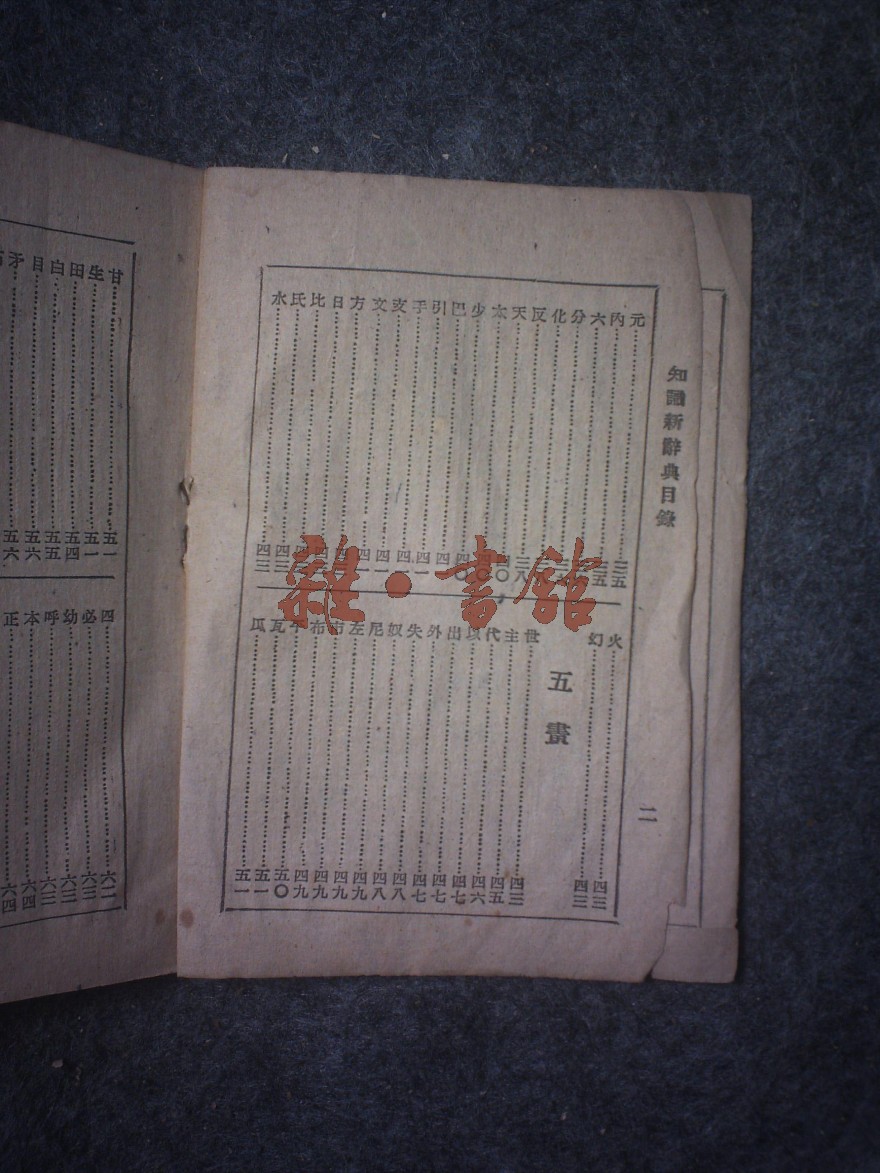 知識新辭典目錄
二
元……三五
内……三五
六
分
化
反……三八
天……四〇
太
少……四〇
巴……四一
引……四一
手……四一
支……四一
文……四一
方
日
比
氏……四三
水……四三
火……四三
幻……四三
五畫
世……四三
主……四五
代……四六
以……四七
出……四七
外……四七
失……四八
奴……四八
尼……四九
左……四九
市……四九
布……四九
平……五〇
瓦……五一
瓜……五一
甘……五一
生……五一
田……五四
白……五五
目……五六
矛……五六
四……六二
必……六三
幼……六三
呼……六三
本……六四
正……六四
雜·書館